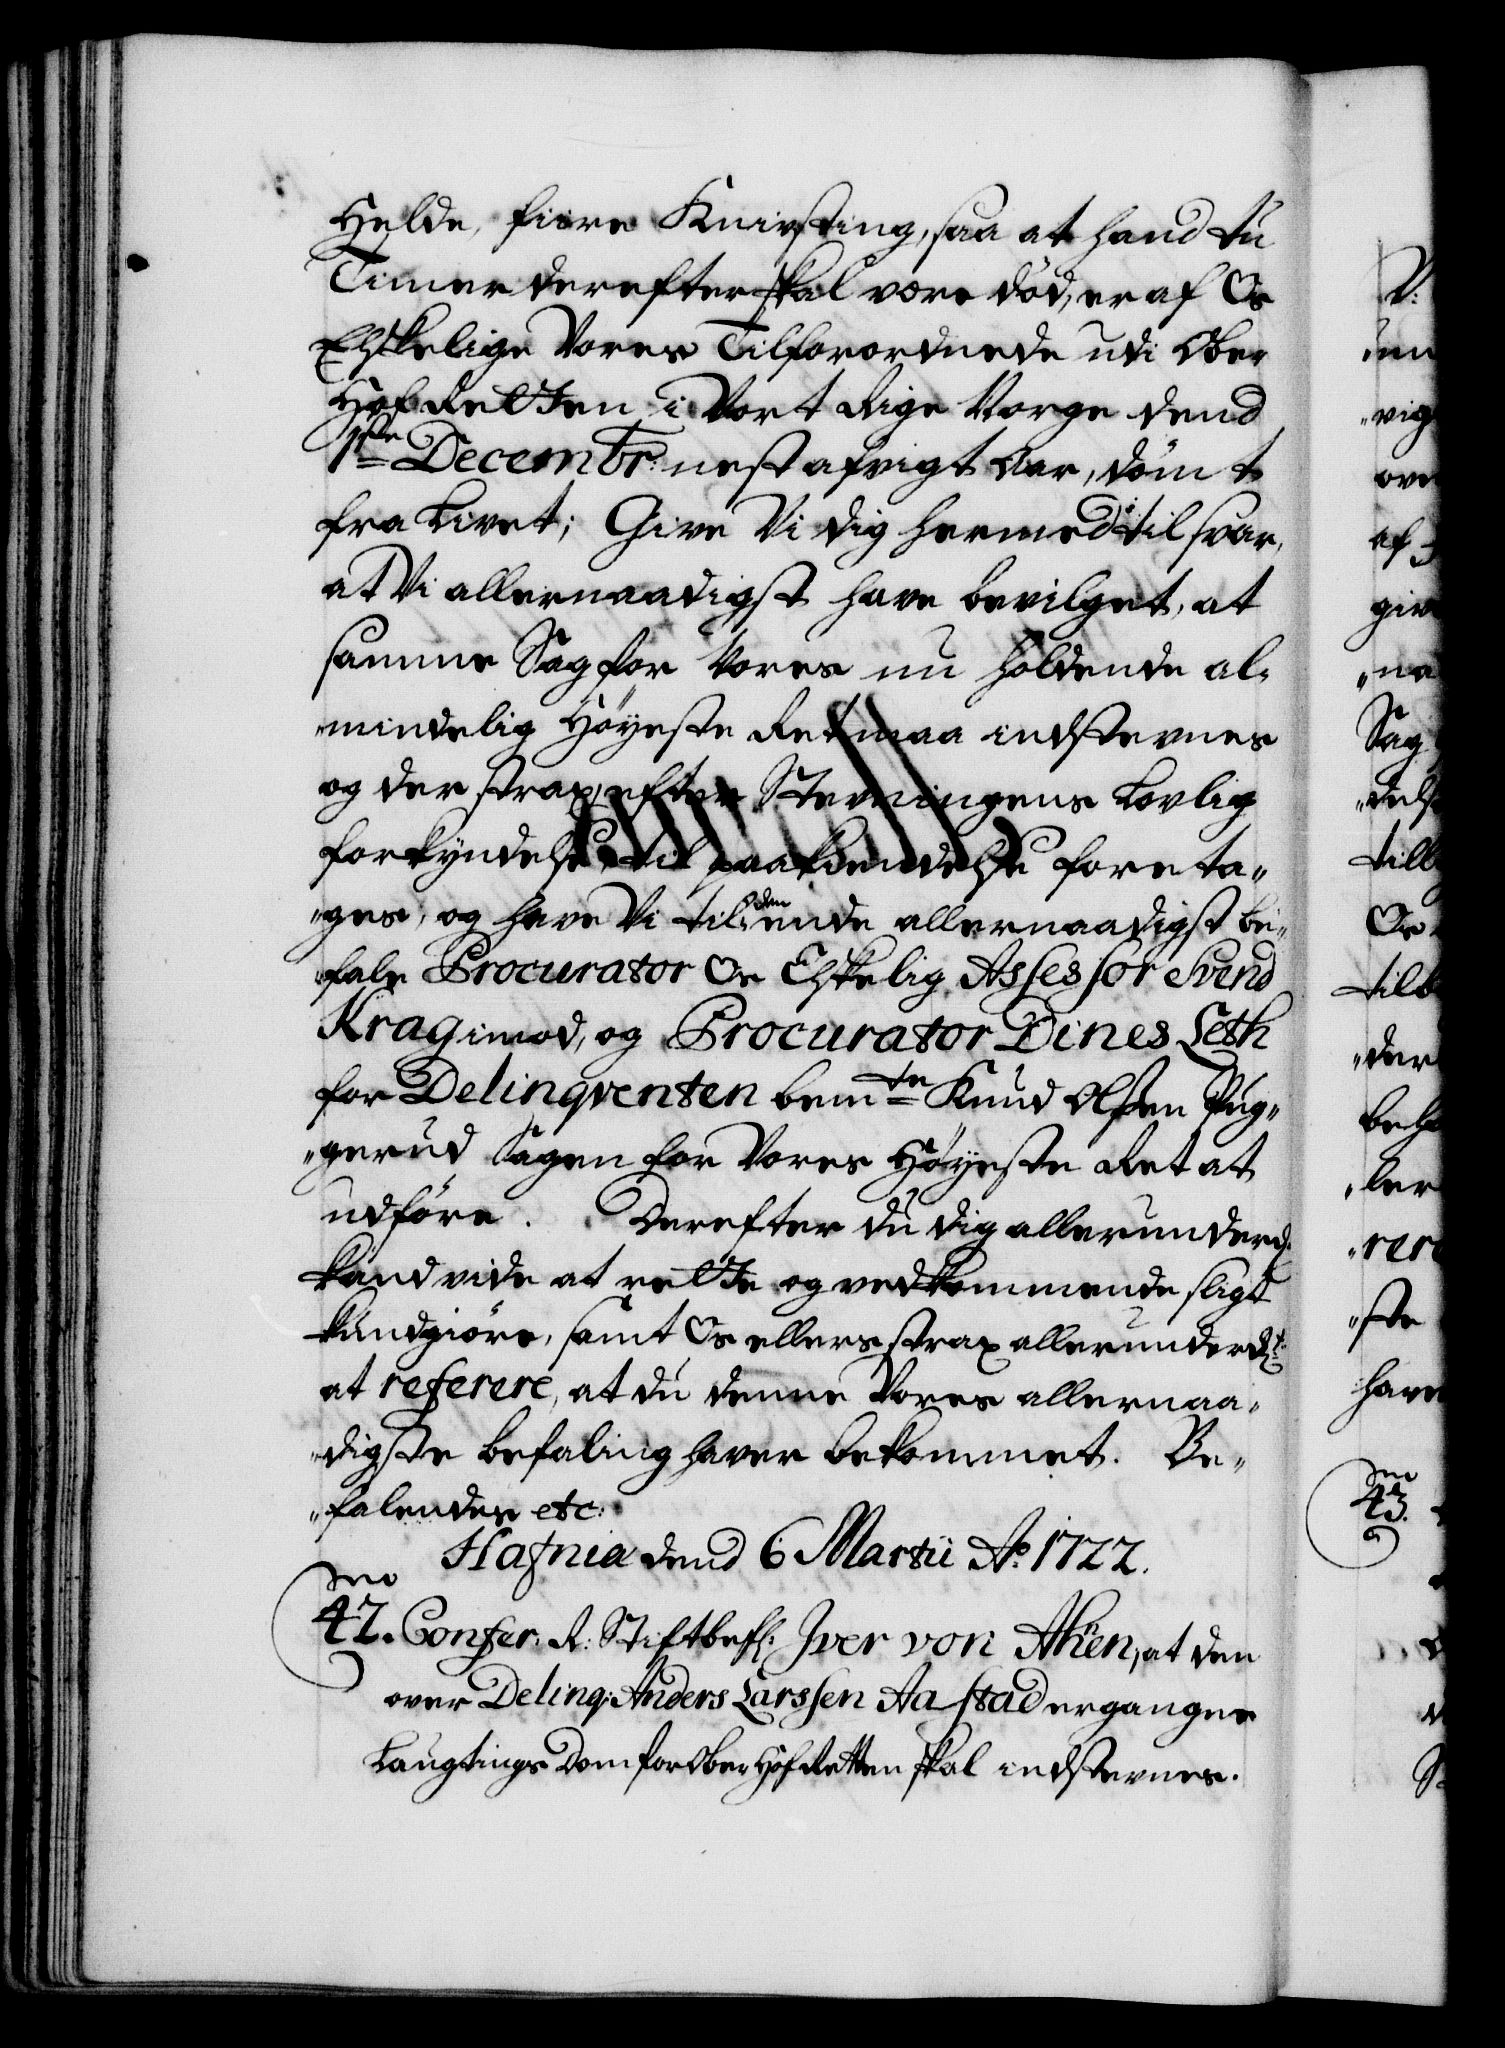 Helde, fiire Knivsting, saa at hand tu
Timer derefter skal være död, er af Os
Elskelige Vores Tilforordnede udi Ober
HofRetten i Vort Rige Norge dend
1ste Decembr: nest afvigt Aar, dömt
fra Livet; Give Vi dig hermed til svar,
at Vi allernaadigst have bevilget, at
samme Sag for Vores nu holdende al-
mindelig Höyeste Ret maa indstevnes
og der strax, efter Stevningens Lovlig
forkyndelse, til paakiendelse foreta-
-ges, og have Vi til den ende allernaadigst be-
-fale Procurator Os Elskelig Assessor Svend
Krag imod, og Procurator Dines Leth
for Delinqventen bemte Knud Olsen Pug-
-gerud Sagen for Vores Höyeste Ret at
udföre. Derefter du dig allerunderd:
kand vide at rette og vedkommende sligt
kundgiöre, samt Os ellers strax allerunderdt:
at referere, at du denne Vores allernaa-
-digste befaling haver bekommet. Be-
-falendes etc:
Hafnia dend 6 Martii Ao 1722.
No
42. Confer: R: Stiftbefl: Iver von Ahnen, at den
over Delinq: Anders Larssen Aastad ergangne
Laugtings Dom for Ober HofRetten skal indstevnes.
V:
-vig
af
giv
-na
Sag
-dels
till
Os
tilb
-der
-ler
-rere
-ste
have
No
43.